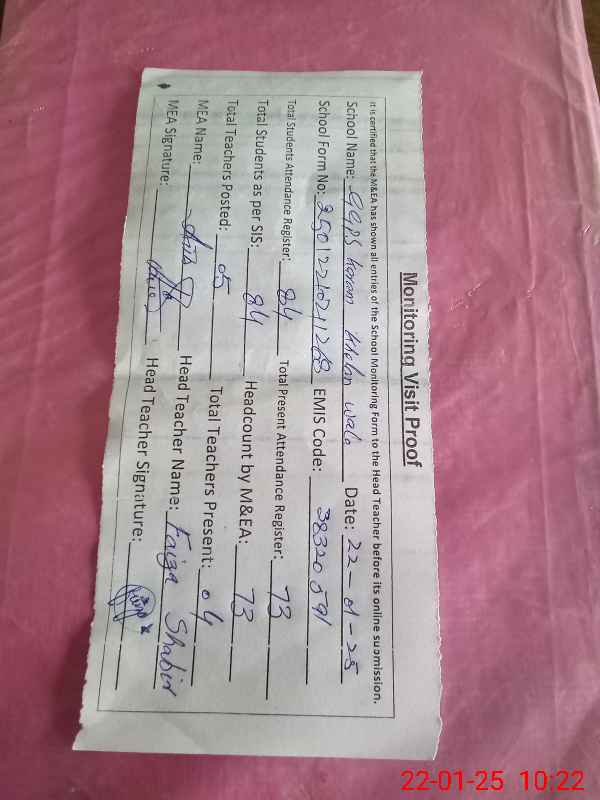 Monitoring Visit Proof
It is certified that the M&EA has shown all entries of the School Monitoring Form to the Head Teacher before its online submission.
School Name: GGPS Karam Khelan wala Date: 22-01-25
School Form No: 25012210211268 EMIS Code: 38320591
Total Students Attendance Register: 84 Total Present Attendance Register: 73
Total Students as per SIS: 84 Headcount by M&EA: 73
Total Teachers Posted: 05 Total Teachers Present: 04
MEA Name: Head Teacher Name: Faiza Shabir
MEA Signature: Head Teacher Signature:
22-01-25 10:22